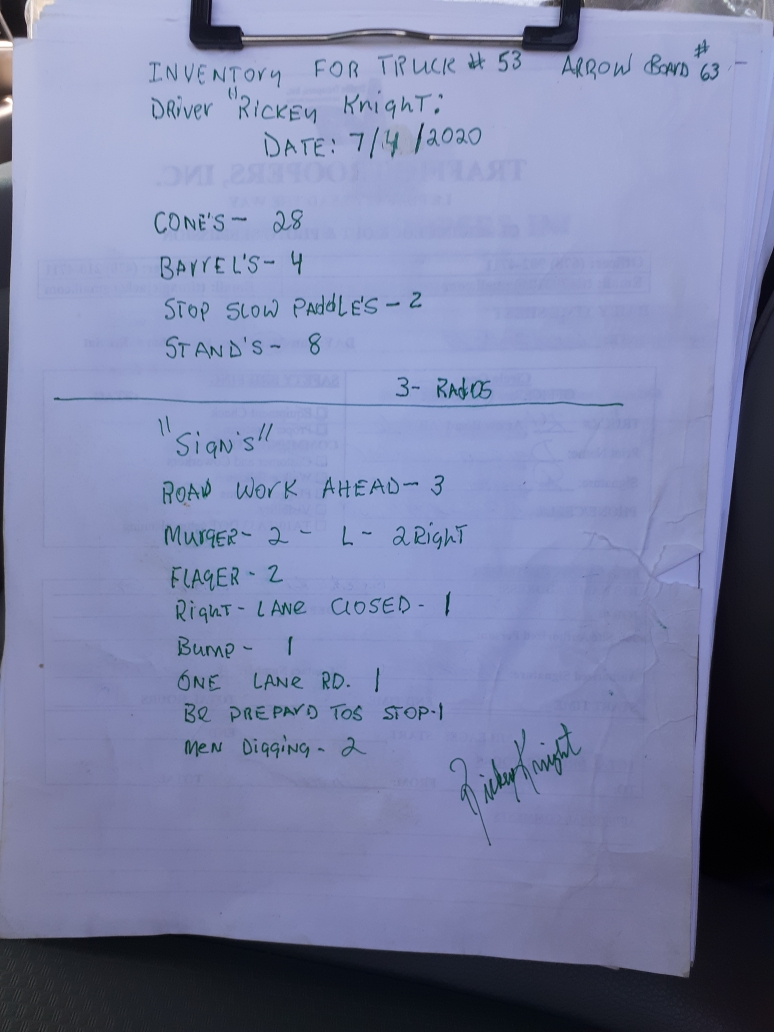 INVENTORY FOR TRUCK # 53 ARROW BOARD # 63
DRIVER "RICKEY KNIGHT:
DATE: 7/4/2020
TRAFFIC TROOPERS, INC.
CONE'S - 28
BARREL'S - 4
STOP SLOW PADDLE'S - 2
STAND'S - 8
3- RADOS
"SIGN'S"
ROAD WORK AHEAD - 3
MURGER - 2 - L - 2 RIGHT
FLAGER - 2
RIGHT - LANE CLOSED - 1
BUMP - 1
ONE LANE RD. 1
BE PREPARD TOS STOP-1
MEN DIGGING - 2
Rickey Knight